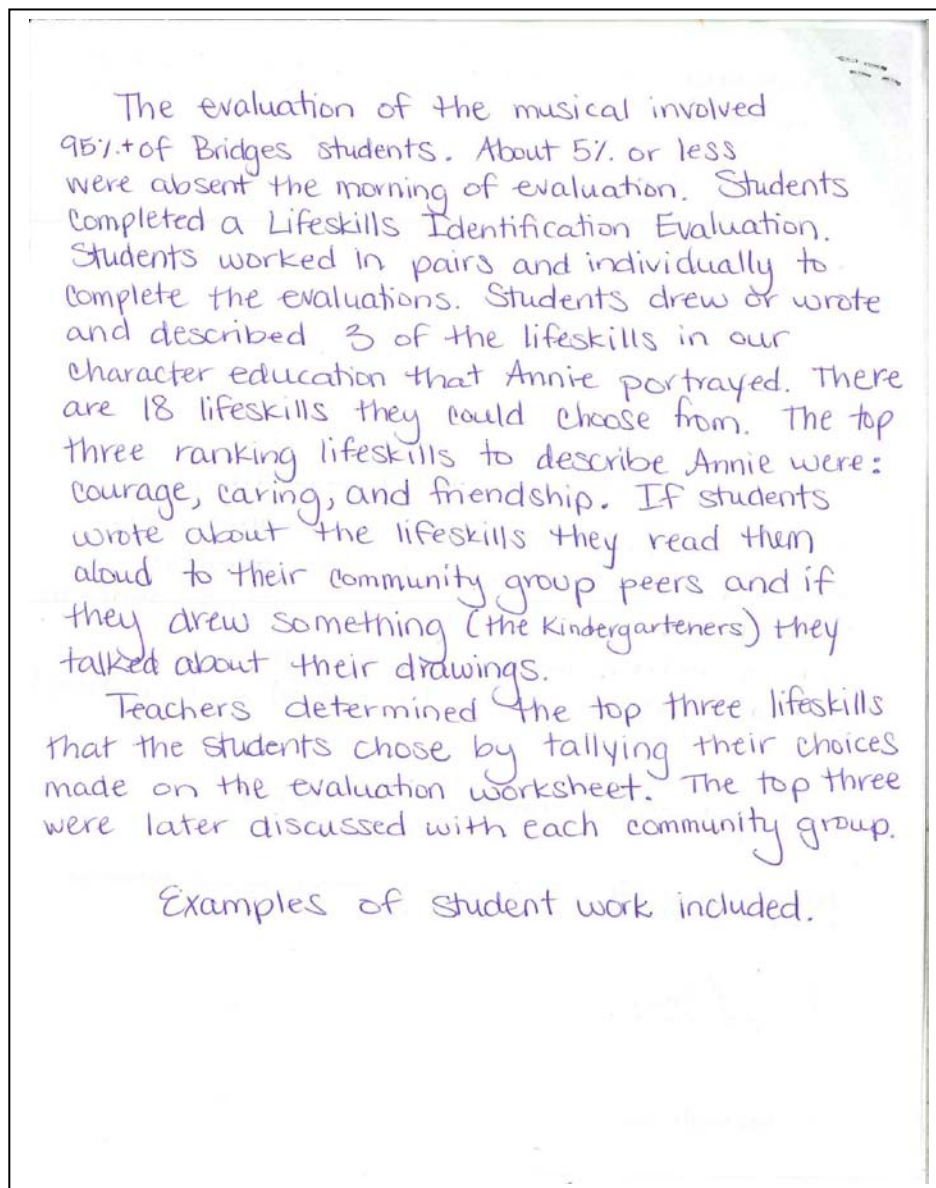 The evaluation of the musical involved
95%+ of Bridges students. About 5% or less
were absent the morning of evaluation. Students
completed a Lifeskills Identification Evaluation.
Students worked in pairs and individually to
complete the evaluations. Students drew or wrote
and described 3 of the lifeskills in our
character education that Annie portrayed. There
are 18 lifeskills they could choose from. The top
three ranking lifeskills to describe Annie were:
courage, caring, and friendship. If students
wrote about the lifeskills they read them
aloud to their community group peers and if
they drew something (the Kindergarteners) they
talked about their drawings.
Teachers determined the top three lifeskills
that the students chose by tallying their choices
made on the evaluation worksheet. The top three
were later discussed with each community group.
Examples of student work included.